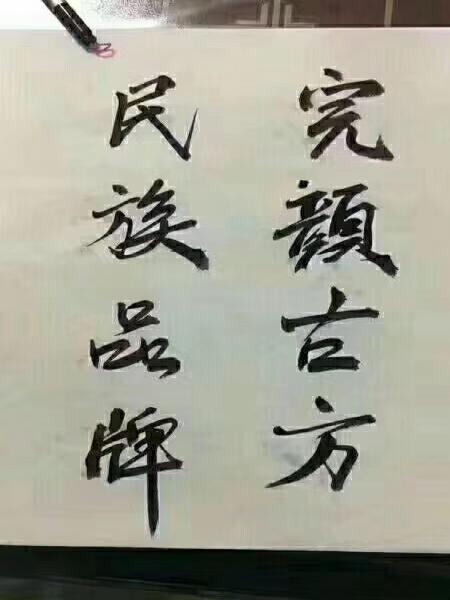 完顏古方
民族品牌